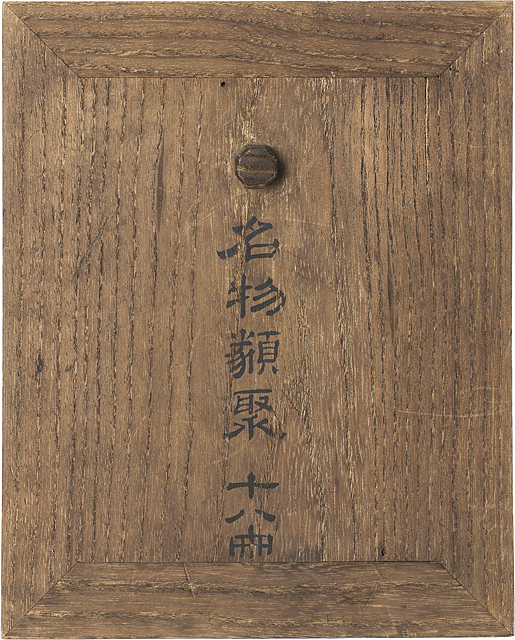 名物類聚 十八冊